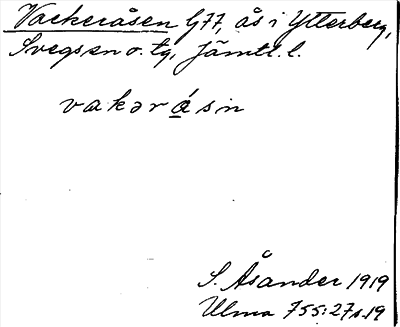 Vackeråsen G77, ås i Ytterberg,
Svegs sn o. tg, Jämtl. l.
vakərǻsn
S. Åsander 1919
Ulma 755:27 s. 19